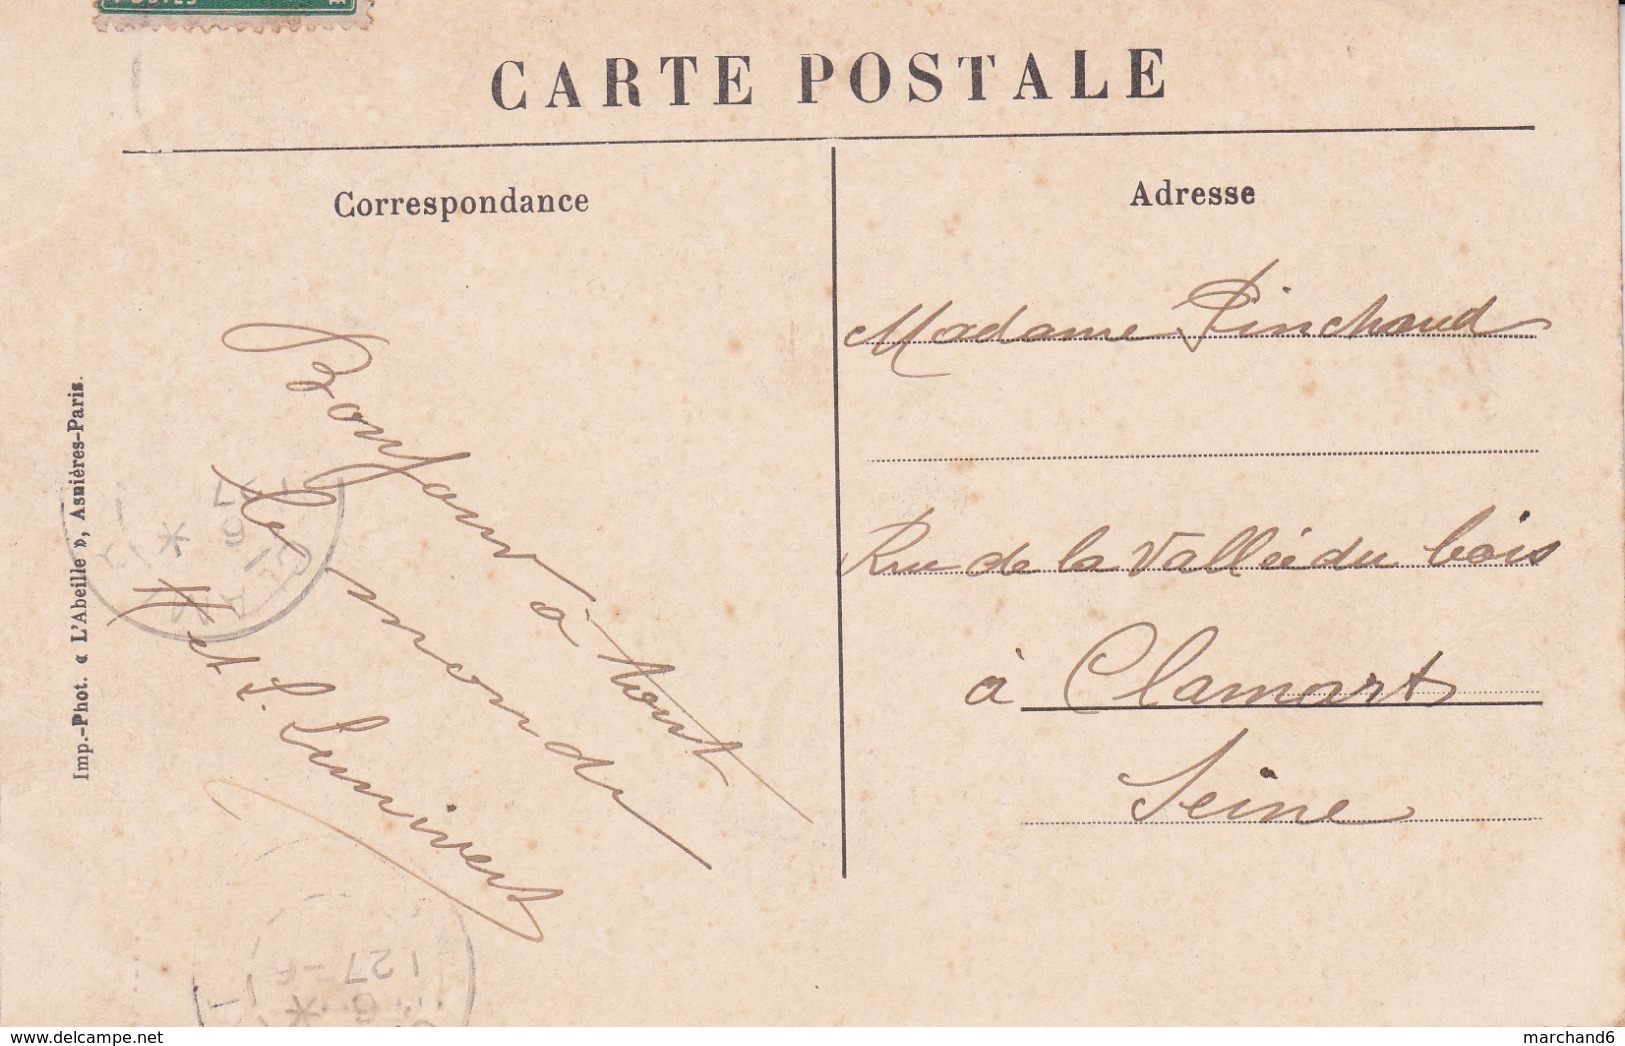 POSTES
CARTE POSTALE
Correspondance
Bonjour à tout
le monde
et L.
Imp.-Phot. « L'Abeille », Asnières-Paris.
CLAM
6
27
Adresse
Madame Pinchaud
Rue de la Vallée du bois
à Clamart
Seine
1 27-6
6
www.delcampe.net
marchand6